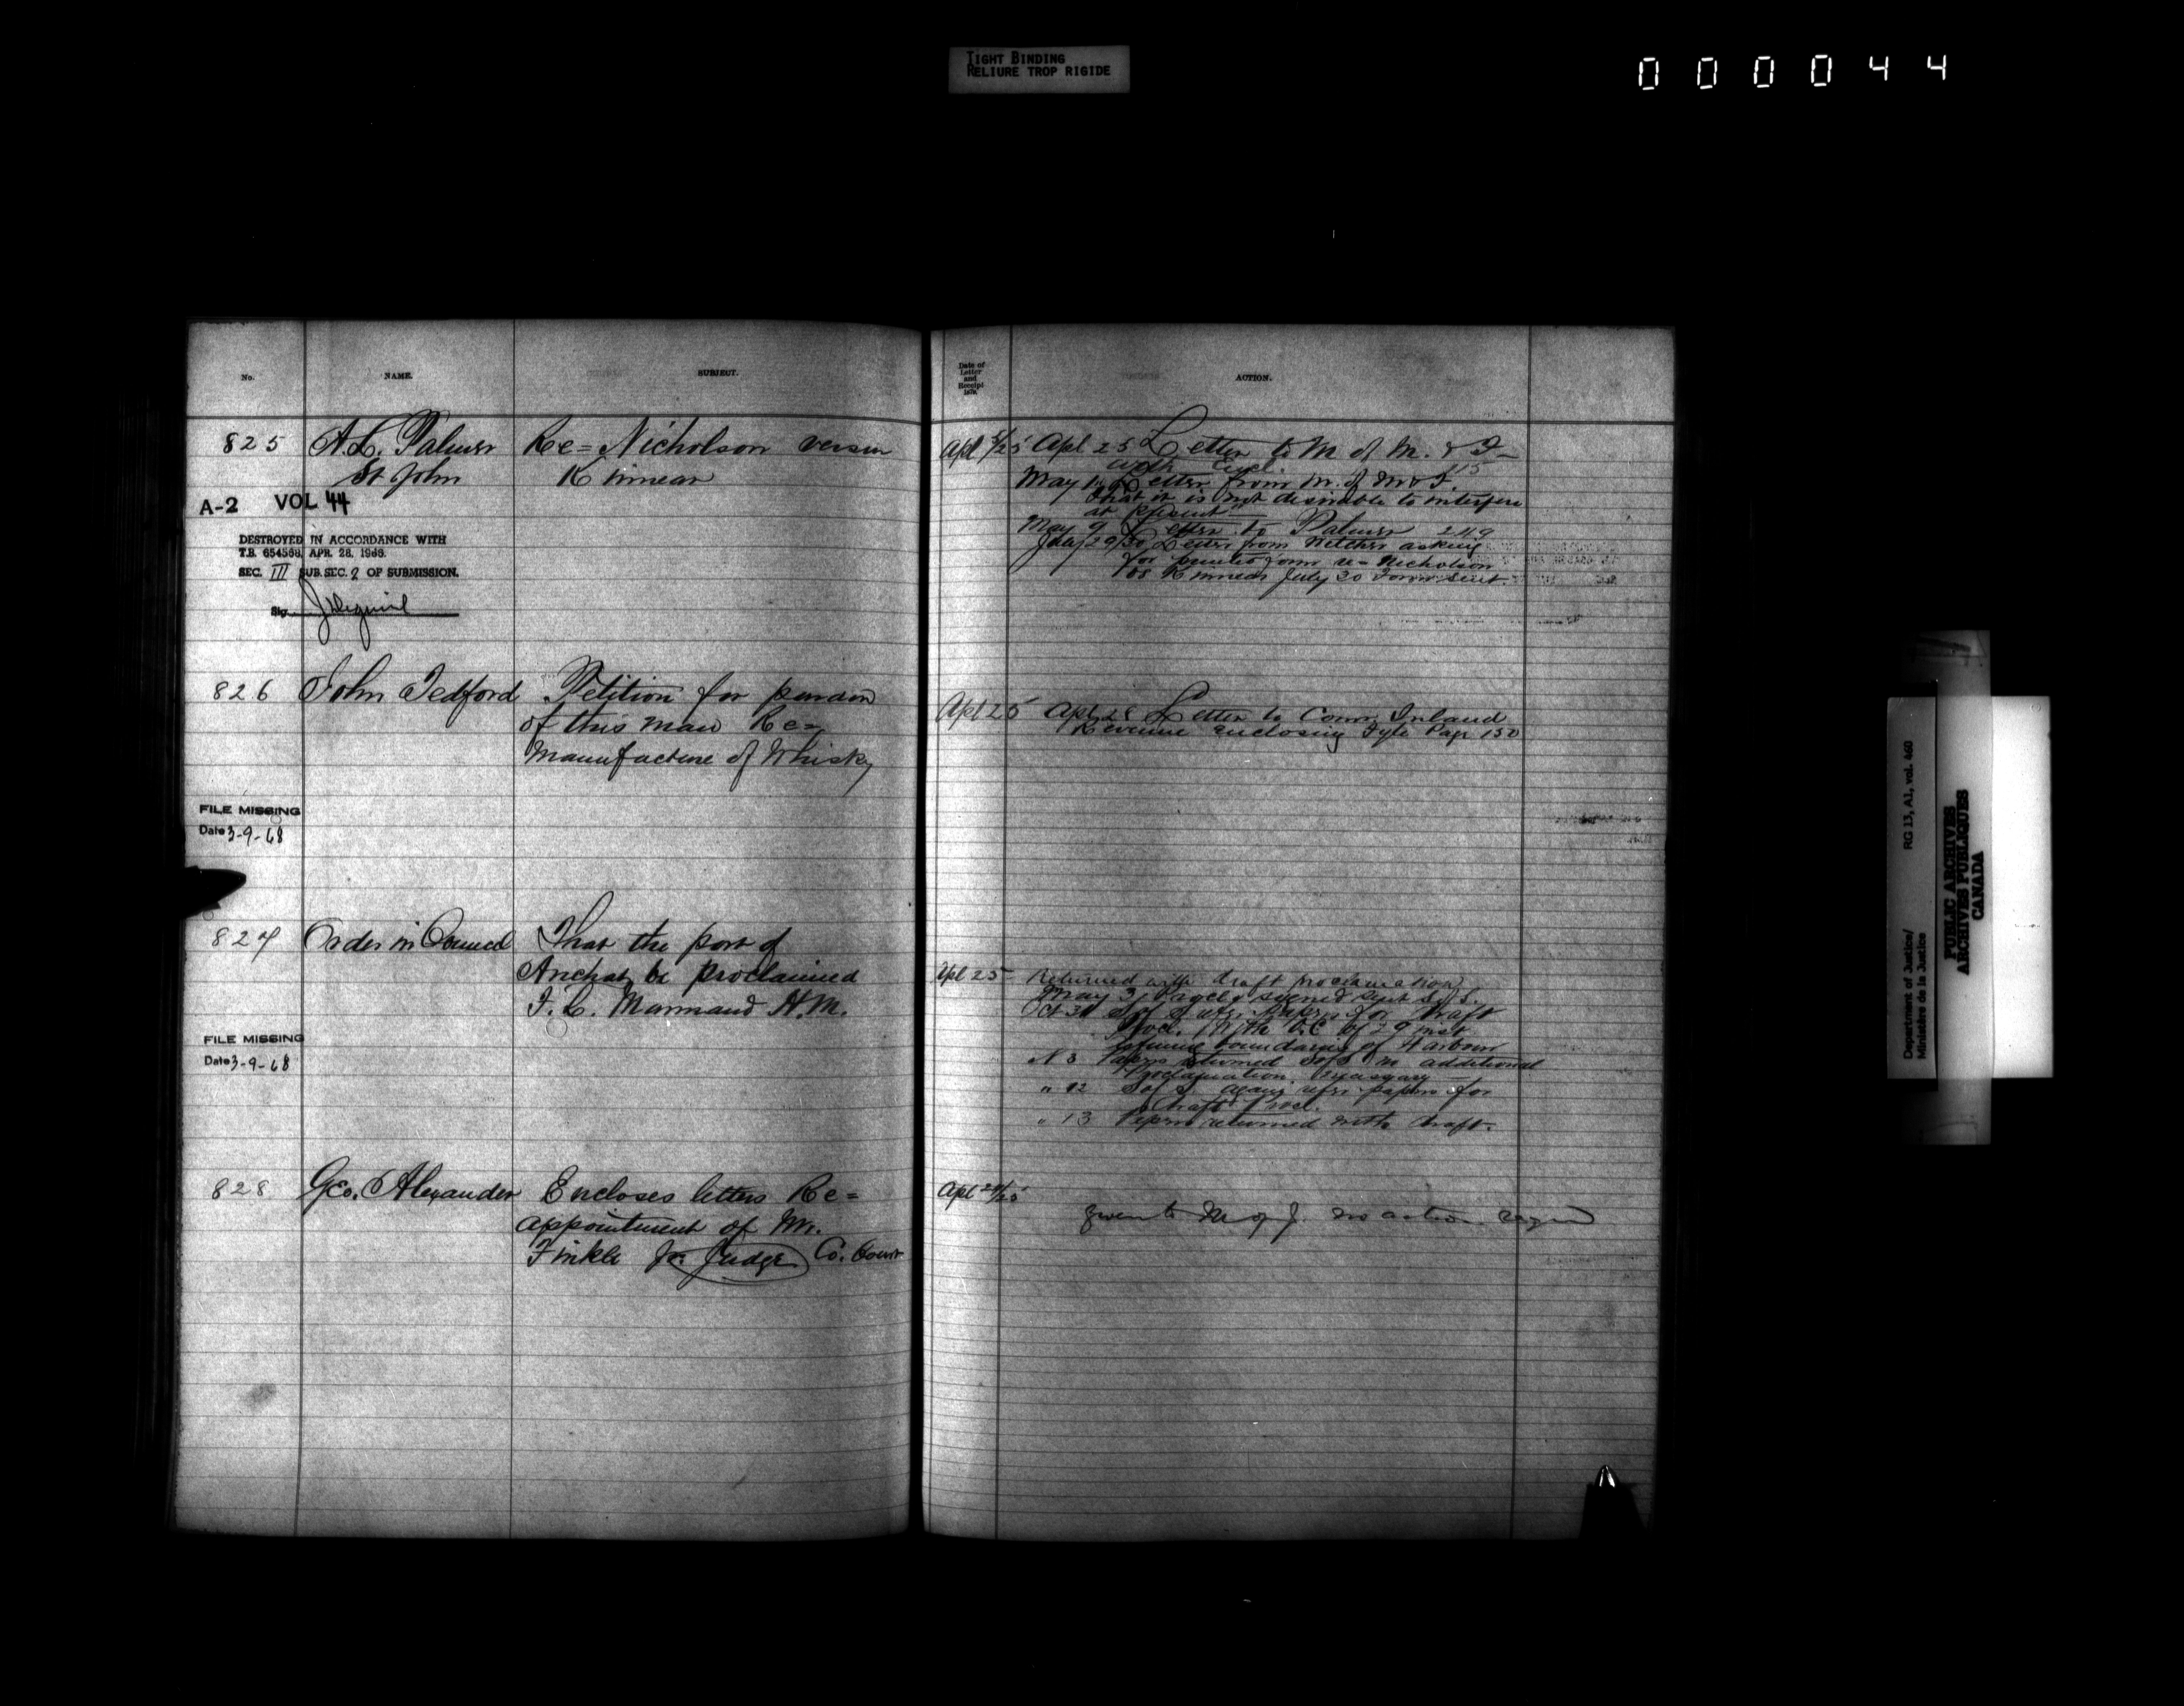 TIGHT BINDING
RELIURE TROP RIGIDE
000044
No. NAME. SUBJECT.
825 A.L. Palmer Re= Nicholson versus
St John Kinnear
A-2 VOL 44
DESTROYED IN ACCORDANCE WITH
T.B. 654568, APR. 28, 1966.
SEC. III SUB. SEC. 2 OF SUBMISSION.
Sig.
826 John Tedford Petition for pardon
of this man Re=
Manufacture of Whisky
FILE MISSING
Date 3-9-68
827 Order in Council That the port of
Anchat be proclaimed
F. C. Marmaud H.M.
FILE MISSING
Date 3-9-68
828 Geo. Alexander Encloses letters Re=
appointment of Mr.
Finkle Jr. Judge Co. Court
Date of
Letter
and
Receipt
ACTION.
Apl Apl 25 Letter to M of M. & F
with encl. 115
May Letter from M. of M & F.
that it is not desirable to interfere
at present"
May 9 Letter to Palmer 249
July 29/30 Letter from asking
for form re= Nicholson
vs Kinnear July 30 Form sent.
Apl 25 Apl 28 Letter to Comr. Inland
Revenue enclosing Fyle Page 150
Apl 25 Returned with draft proclamation
May 3 signed sent S.S.
Oct 31 S of S refrs. papers for draft
Procl. with O.C. of 29 inst
boundaries of Harbour
N 8 Papers returned S of S additional
Proclamation necessary
" 12 S of S again refrs papers for
draft Procl.
" 13 Papers returned with draft.
Apl 24/25
given to M of J. no action
Department of Justice/
Ministère de la Justice
RG 13, A1, vol. 460
PUBLIC ARCHIVES
ARCHIVES PUBLIQUES
CANADA